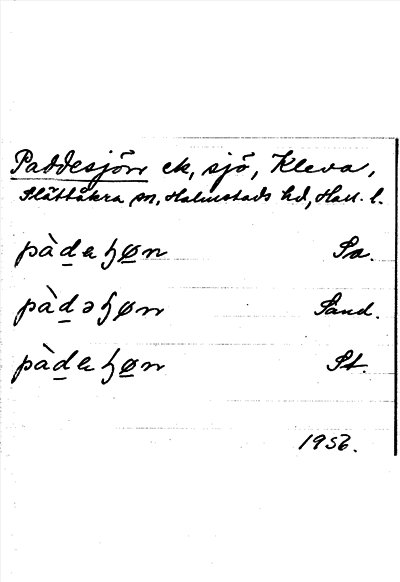 Paddesjön ek, sjö, Kleva,
Slättåkra sn, Halmstads hd, Hall. l.
pàdaɧøn Sa.
pàdəɧøn Sand.
pàdaɧøn St.
1956.